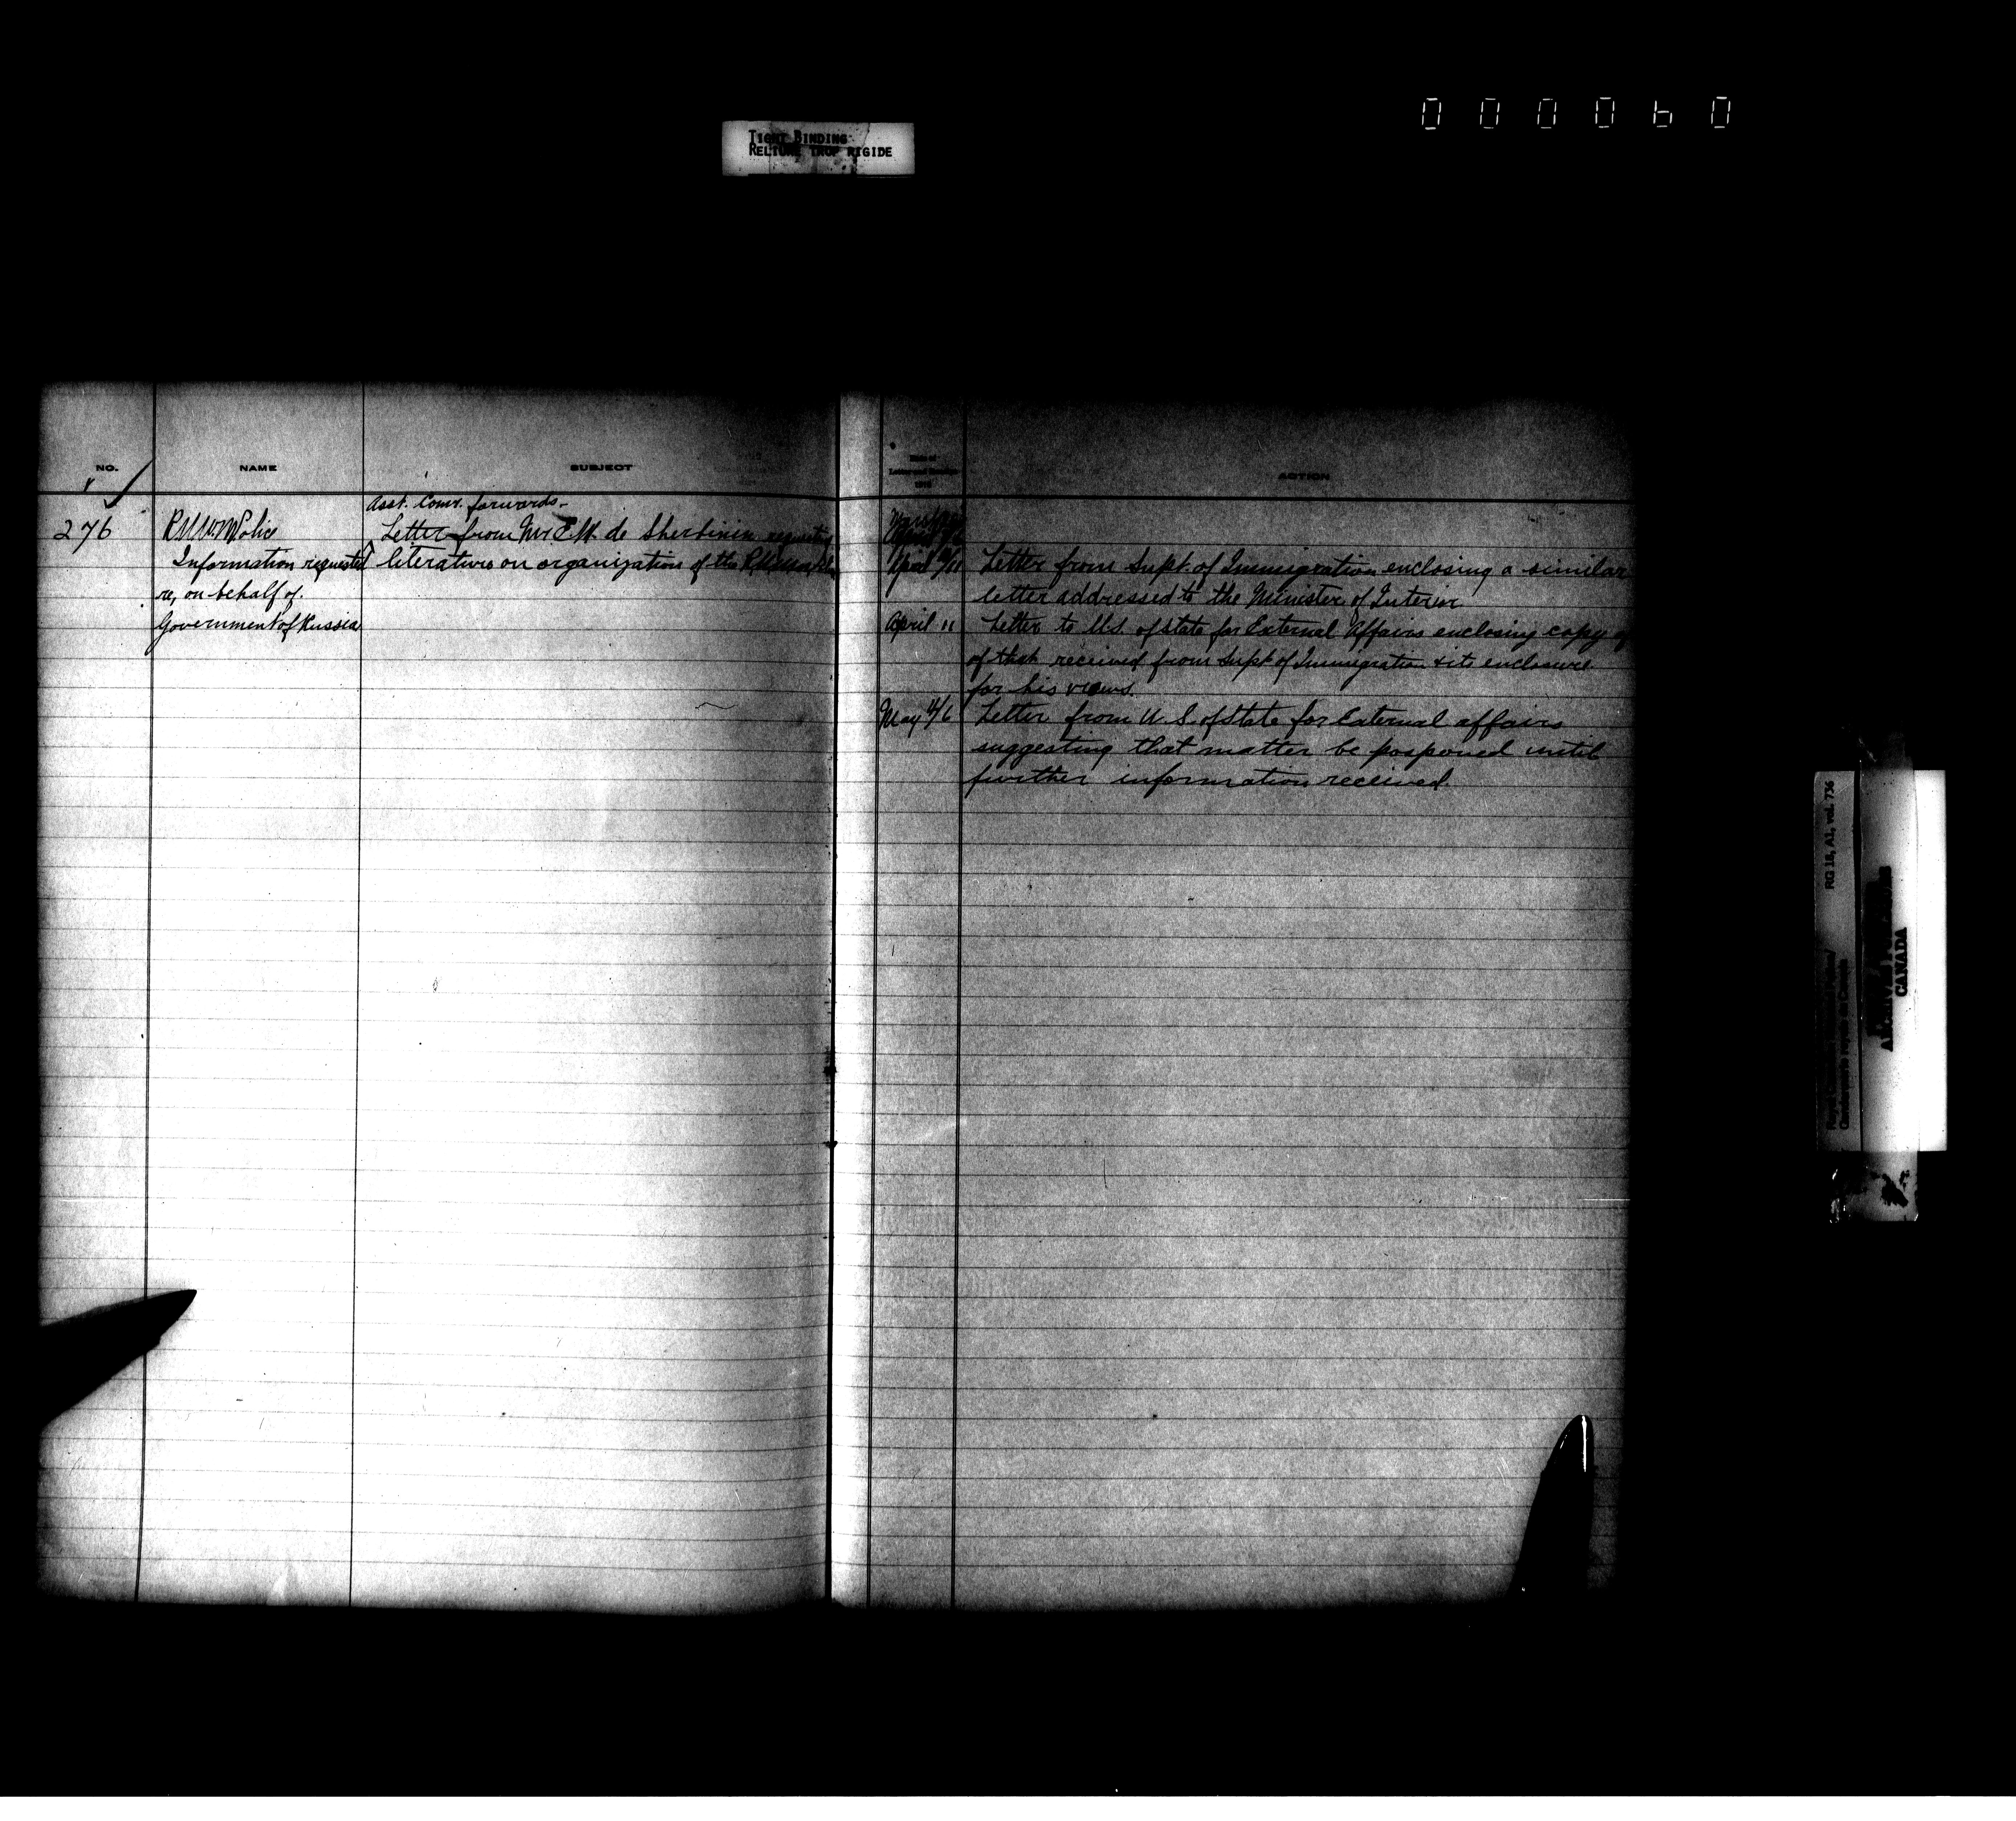 000060
TIGHT BINDING
RELIURE TROP RIGIDE
NO.
NAME
SUBJECT
Asst. Comr. forwards -
276
R.N.W.M. Police
Information requested
re, on behalf of
Government of Russia
Letter from Mr. E.W. de Sherbinin
literature on organization of the R.N.W.M.P.
Date of
ACTION
April
Letter from Supt. of Immigration enclosing a similar
letter addressed to the Minister of Interior
April 11
Letter to U.S. of State for External Affairs enclosing copy of
of that received from Supt of Immigration & its enclosure
for his views.
May 4/6
Letter from U.S. of State for External affairs
suggesting that matter be posponed until
further information received.
RG 18, A1, vol. 736
CANADA